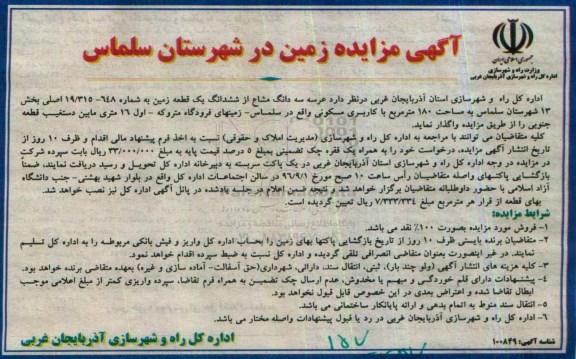 جمهوری اسلامی ایران
وزارت راه و شهرسازی
اداره کل راه و شهرسازی آذربایجان غربی
آگهی مزایده زمین در شهرستان سلماس
اداره کل راه و شهرسازی استان آذربایجان غربی درنظر دارد عرصه سه دانگ مشاع از ششدانگ یک قطعه زمین به شماره ۶۴۸- ۱۹/۳۱۵ اصلی بخش
۱۳ شهرستان سلماس به مساحت ۱۸۰ مترمربع با کاربری مسکونی واقع در سلماس- زمینهای فرودگاه متروکه - اول ۱۶ متری مابین دستغیب قطعه
جنوبی را از طریق مزایده واگذار نماید.
کلیه متقاضیان می توانند با مراجعه به اداره کل راه و شهرسازی (مدیریت املاک و حقوقی) نسبت به اخذ فرم پیشنهاد مالی اقدام و ظرف ۱۰ روز از
تاریخ انتشار آگهی مزایده، درخواست خود را به همراه یک فقره چک تضمینی بمبلغ ۵ درصد قیمت پایه به مبلغ ۳۳/۰۰۰/۰۰۰ ریال بابت سپرده شرکت
در مزایده در وجه اداره کل راه و شهرسازی استان آذربایجان غربی در یک پاکت سربسته به دبیرخانه اداره کل تحویل و رسید دریافت نمایند، ضمناً
بازگشایی پاکتهای واصله متقاضیان رأس ساعت ۱۰ صبح مورخ ۹۶/۹/۱ در سالن اجتماعات اداره کل واقع در بلوار شهید بهشتی- جنب دانشگاه
آزاد اسلامی با حضور داوطلبانه متقاضیان برگزار خواهد شد و نتیجه ضمن اعلام در جلسه یادشده در پانل آگهی اداره کل نیز نصب خواهد شد.
بهای قطعه از قرار هر مترمربع مبلغ ۷/۳۳۳/۳۳۴ ریال تعیین گردیده است.
شرایط مزایده:
۱- فروش مورد مزایده بصورت ۱۰۰٪ نقد می باشد.
۲- متقاضیان برنده بایستی ظرف ۱۰ روز از تاریخ بازگشایی پاکتها بهای زمین را بحساب اداره کل واریز و فیش بانکی مربوطه را به اداره کل تسلیم
نمایند. در غیر اینصورت بعنوان متقاضی انصرافی تلقی گردیده و اداره کل نسبت به ضبط سپرده اقدام خواهد نمود.
۳- کلیه هزینه های انتشار آگهی (ولو چند بار)، ثبتی، انتقال سند، دارائی، شهرداری(حق آسفالت- آماده سازی و غیره) بعهده متقاضی برنده خواهد بود.
۴- پیشنهادات دارای قلم خوردگی و مبهم یا مخدوش، عدم ارسال چک تضمین به همراه فرم تقاضا، سپرده واریزی کمتر از مبلغ اعلامی موجب
ابطال تقاضا شده و اعتراض بعدی در این خصوص قابل قبول نخواهد بود.
۵- انتقال سند منوط به اتمام بدهی و ارائه پایانکار ساختمانی می باشد.
۶- اداره کل راه و شهرسازی آذربایجان غربی در رد یا قبول پیشنهادات واصله مختار می باشد.
اداره کل راه و شهرسازی آذربایجان غربی
شناسه آگهی: ۱۰۰۸۴۹